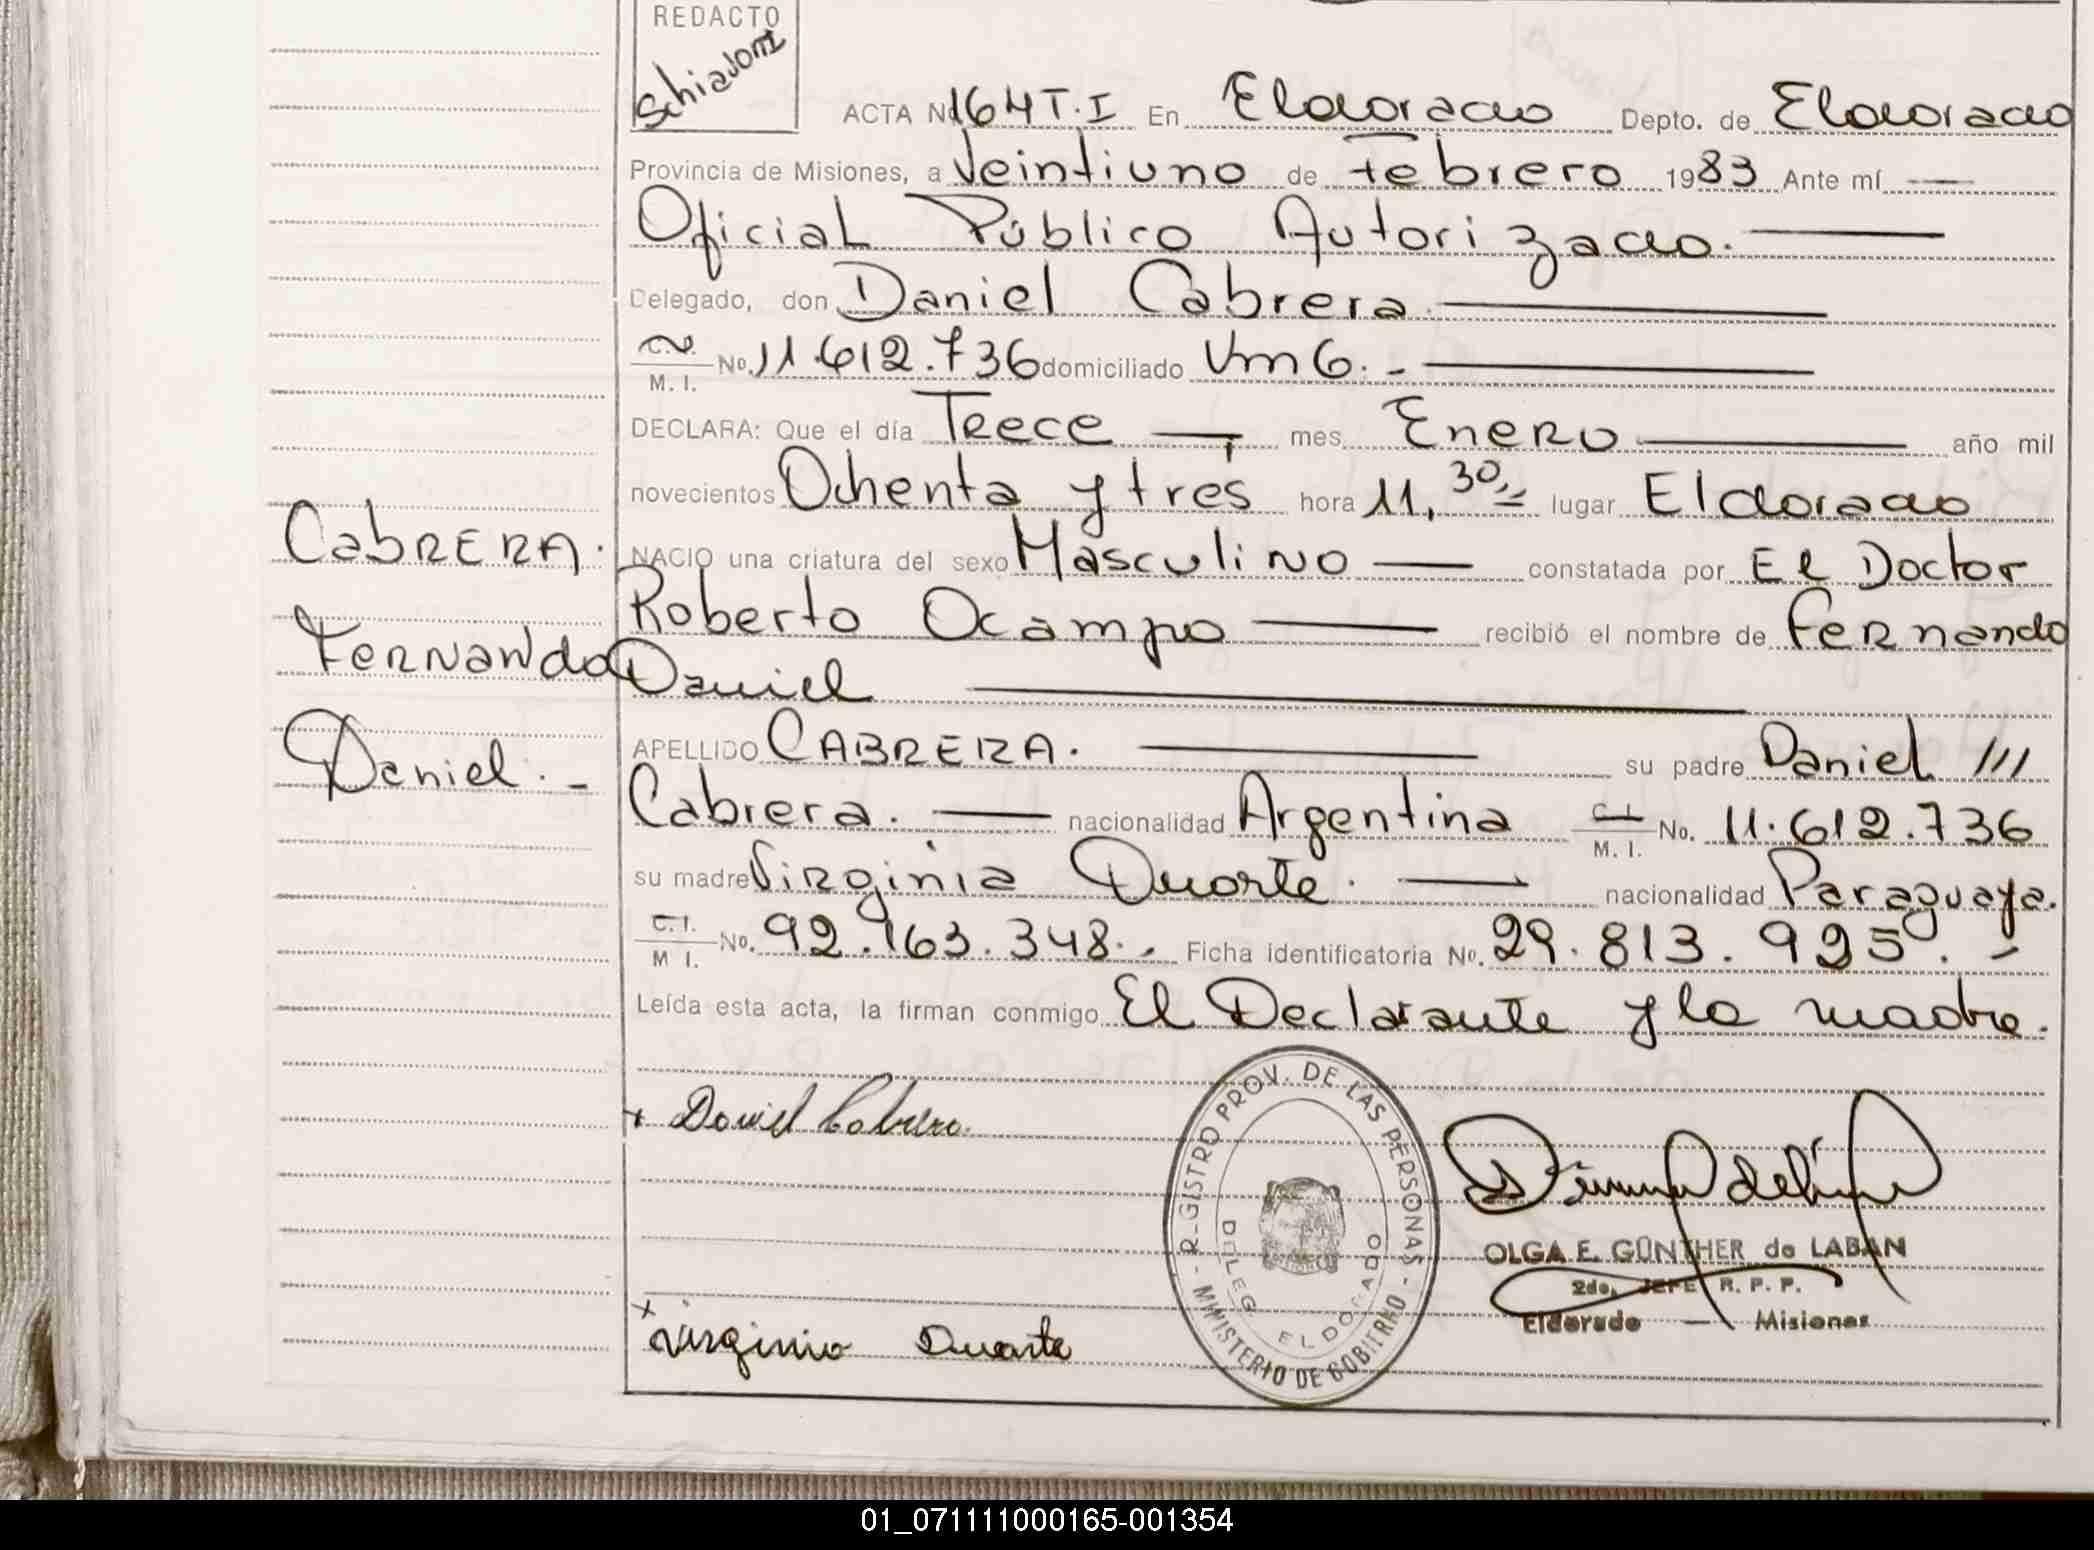 REDACTO
Schiavoni
ACTA No 164 T.I En Eldorado Depto. de Eldorado
Provincia de Misiones, a Veintiuno de Febrero 1983 Ante mí —
Oficial Público Autorizado. —
Delegado, don Daniel Cabrera —
M. I. No. 11.612.736 domiciliado Km 6. - —
DECLARA: Que el día Trece — mes Enero — año mil
novecientos Ochenta y tres hora 11,30 lugar Eldorado
NACIO una criatura del sexo Masculino — constatada por El Doctor
Roberto Ocampo — recibió el nombre de Fernando
Daniel —
APELLIDO CABRERA. — su padre Daniel ///
Cabrera. — nacionalidad Argentina C.I. M. I. No. 11.612.736
su madre Virginia Duarte. — nacionalidad Paraguaya.
C.I. M I. No. 92.163.348. - Ficha identificatoria No. 29.813.925. -
Leída esta acta, la firman conmigo El Declarante y la madre.
CABRERA.
Fernando
Daniel. -
+ Daniel Cabrera.
x Virginia Duarte
R-GISTRO PROV. DE LAS PERSONAS - MINISTERIO DE GOBIERNO -
DELEG. ELDORADO
OLGA E. GÜNTHER de LABAN
2do. JEFE R. P. P.
Eldorado — Misiones
01_071111000165-001354